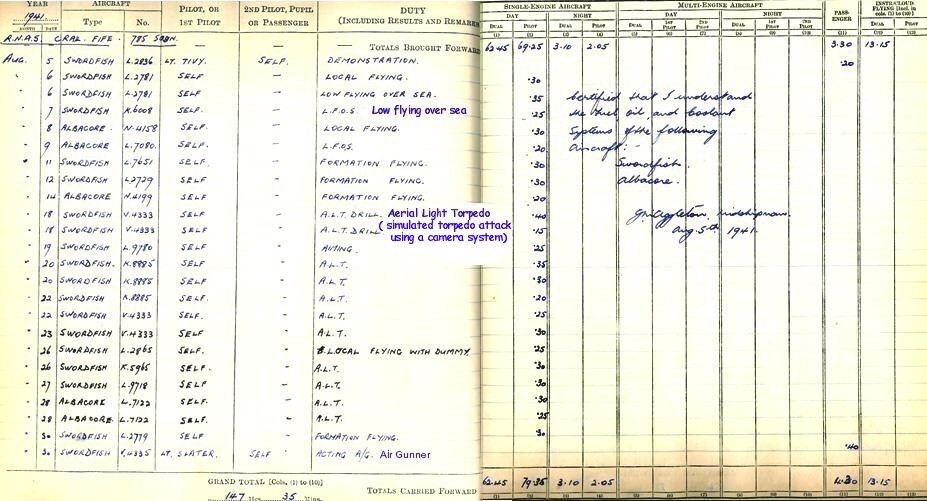 YEAR AIRCRAFT PILOT, OR 2ND PILOT, PUPIL DUTY SINGLE-ENGINE AIRCRAFT MULTI-ENGINE AIRCRAFT PASS-ENGER INSTR/CLOUD FLYING [Incl. in cols. (1) to (10)]
1941. Type No. 1ST PILOT OR PASSENGER (INCLUDING RESULTS AND REMARKS DAY NIGHT DAY NIGHT
MONTH DATE DUAL PILOT DUAL PILOT DUAL 1ST PILOT 2ND PILOT DUAL 1ST PILOT 2ND PILOT DUAL PILOT
(1) (2) (3) (4) (5) (6) (7) (8) (9) (10) (11) (12) (13)
R.N.A.S CRAIL. FIFE. 785 SQDN. — — — TOTALS BROUGHT FORWARD 62.45 69.25 3.10 2.05 3.30 13.15
AUG. 5 SWORDFISH L.2836 LT. TIVY. SELF. DEMONSTRATION. .20
" 6 SWORDFISH L.2781 SELF — LOCAL FLYING. .30
" 6 SWORDFISH L.2781 SELF — LOW FLYING OVER SEA. .35 Certified that I understand
" 7 SWORDFISH K.6008 SELF — L.F.O.S. Low flying over sea .25 the fuel oil, and coolant
" 8 ALBACORE N.4158 SELF. — LOCAL FLYING. .30 systems of the following
" 9 ALBACORE L.7080. SELF. — L.F.O.S. .20 aircraft:-
" 11 SWORDFISH L.7651 SELF — FORMATION FLYING. .30 Swordfish.
" 12 SWORDFISH L.2729 SELF — FORMATION FLYING. .30 Albacore.
" 14 ALBACORE N.4199 SELF — FORMATION FLYING. .20
" 18 SWORDFISH V.4333 SELF — A.L.T. DRILL. Aerial Light Torpedo .40 Aggleton, midshipman.
" 18 SWORDFISH V.4333 SELF — A.L.T. DRILL ( simulated torpedo attack .15 Aug. 5th 1941.
using a camera system)
" 19 SWORDFISH L.9780 SELF — AIMING. .25
" 20 SWORDFISH. K.8885 SELF. — A.L.T. .35
" 20 SWORDFISH K.8885 SELF — A.L.T. .30
" 22 SWORDFISH K.8885 SELF. — A.L.T. .20
" 22 SWORDFISH V.4333 SELF. — A.L.T. .25
" 23 SWORDFISH V.4333 SELF — A.L.T. .30
" 26 SWORDFISH L.2865 SELF. — LOCAL FLYING WITH DUMMY. .25
" 26 SWORDFISH K.5965 SELF. — A.L.T. .30
" 27 SWORDFISH L.9718 SELF — A.L.T. .30
" 28 ALBACORE L.7122 SELF — A.L.T. .30
" 28 ALBACORE. L.7122 SELF. — A.L.T. .25
" 30 SWORDFISH L.2779 SELF — FORMATION FLYING. .30
" 30 SWORDFISH V.4335 LT. SLATER. SELF — ACTING A/G. Air Gunner .40
GRAND TOTAL [Cols. (1) to (10)] 62.45 79.35 3.10 2.05 4.30 13.15
147 Hrs. 35 Mins. TOTALS CARRIED FORWARD (1) (2) (3) (4) (5) (6) (7) (8) (9) (10) (11) (12) (13)